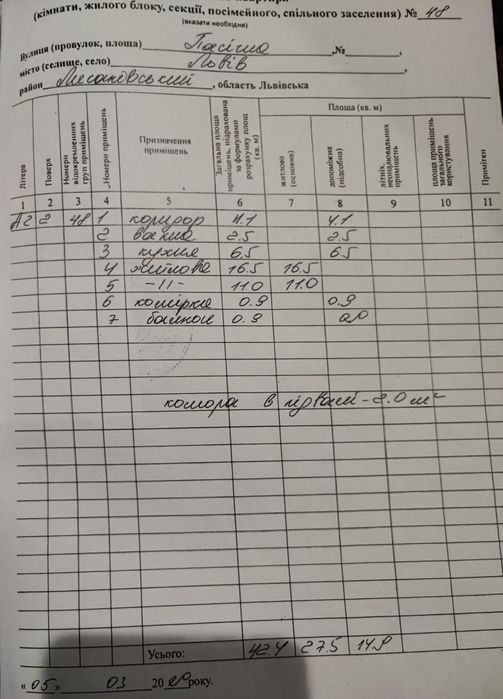 (кімнати, жилого блоку, секції, посімейного, спільного заселення) № 48
(вказати необхідне)
Вулиця (провулок, площа) Пасічна ,№ ,
місто (селище, село) Львів ,
район Личаківський , область Львівська
Літера Поверх Номери відокремлених груп приміщень Номери приміщень Призначення приміщень Загальна площа приміщень, підрахована за формулами розрахунку площ (кв. м) Площа (кв. м)
житлова (основна) допоміжна (підсобна) літніх, неопалювальних приміщень площа приміщень загального користування Примітки
1 2 3 4 5 6 7 8 9 10 11
А2 2 48 1 коридор 4.1 4.1
2 ванна 2.5 2.5
3 кухня 6.5 6.5
4 житлова 16.5 16.5
5 -||- 11.0 11.0
6 комірка 0.9 0.9
7 балкон 0.9
комора в підвалі - 2.0 м²
Усього: 42.4 27.5 14.9
« 05 » 03 20 року.